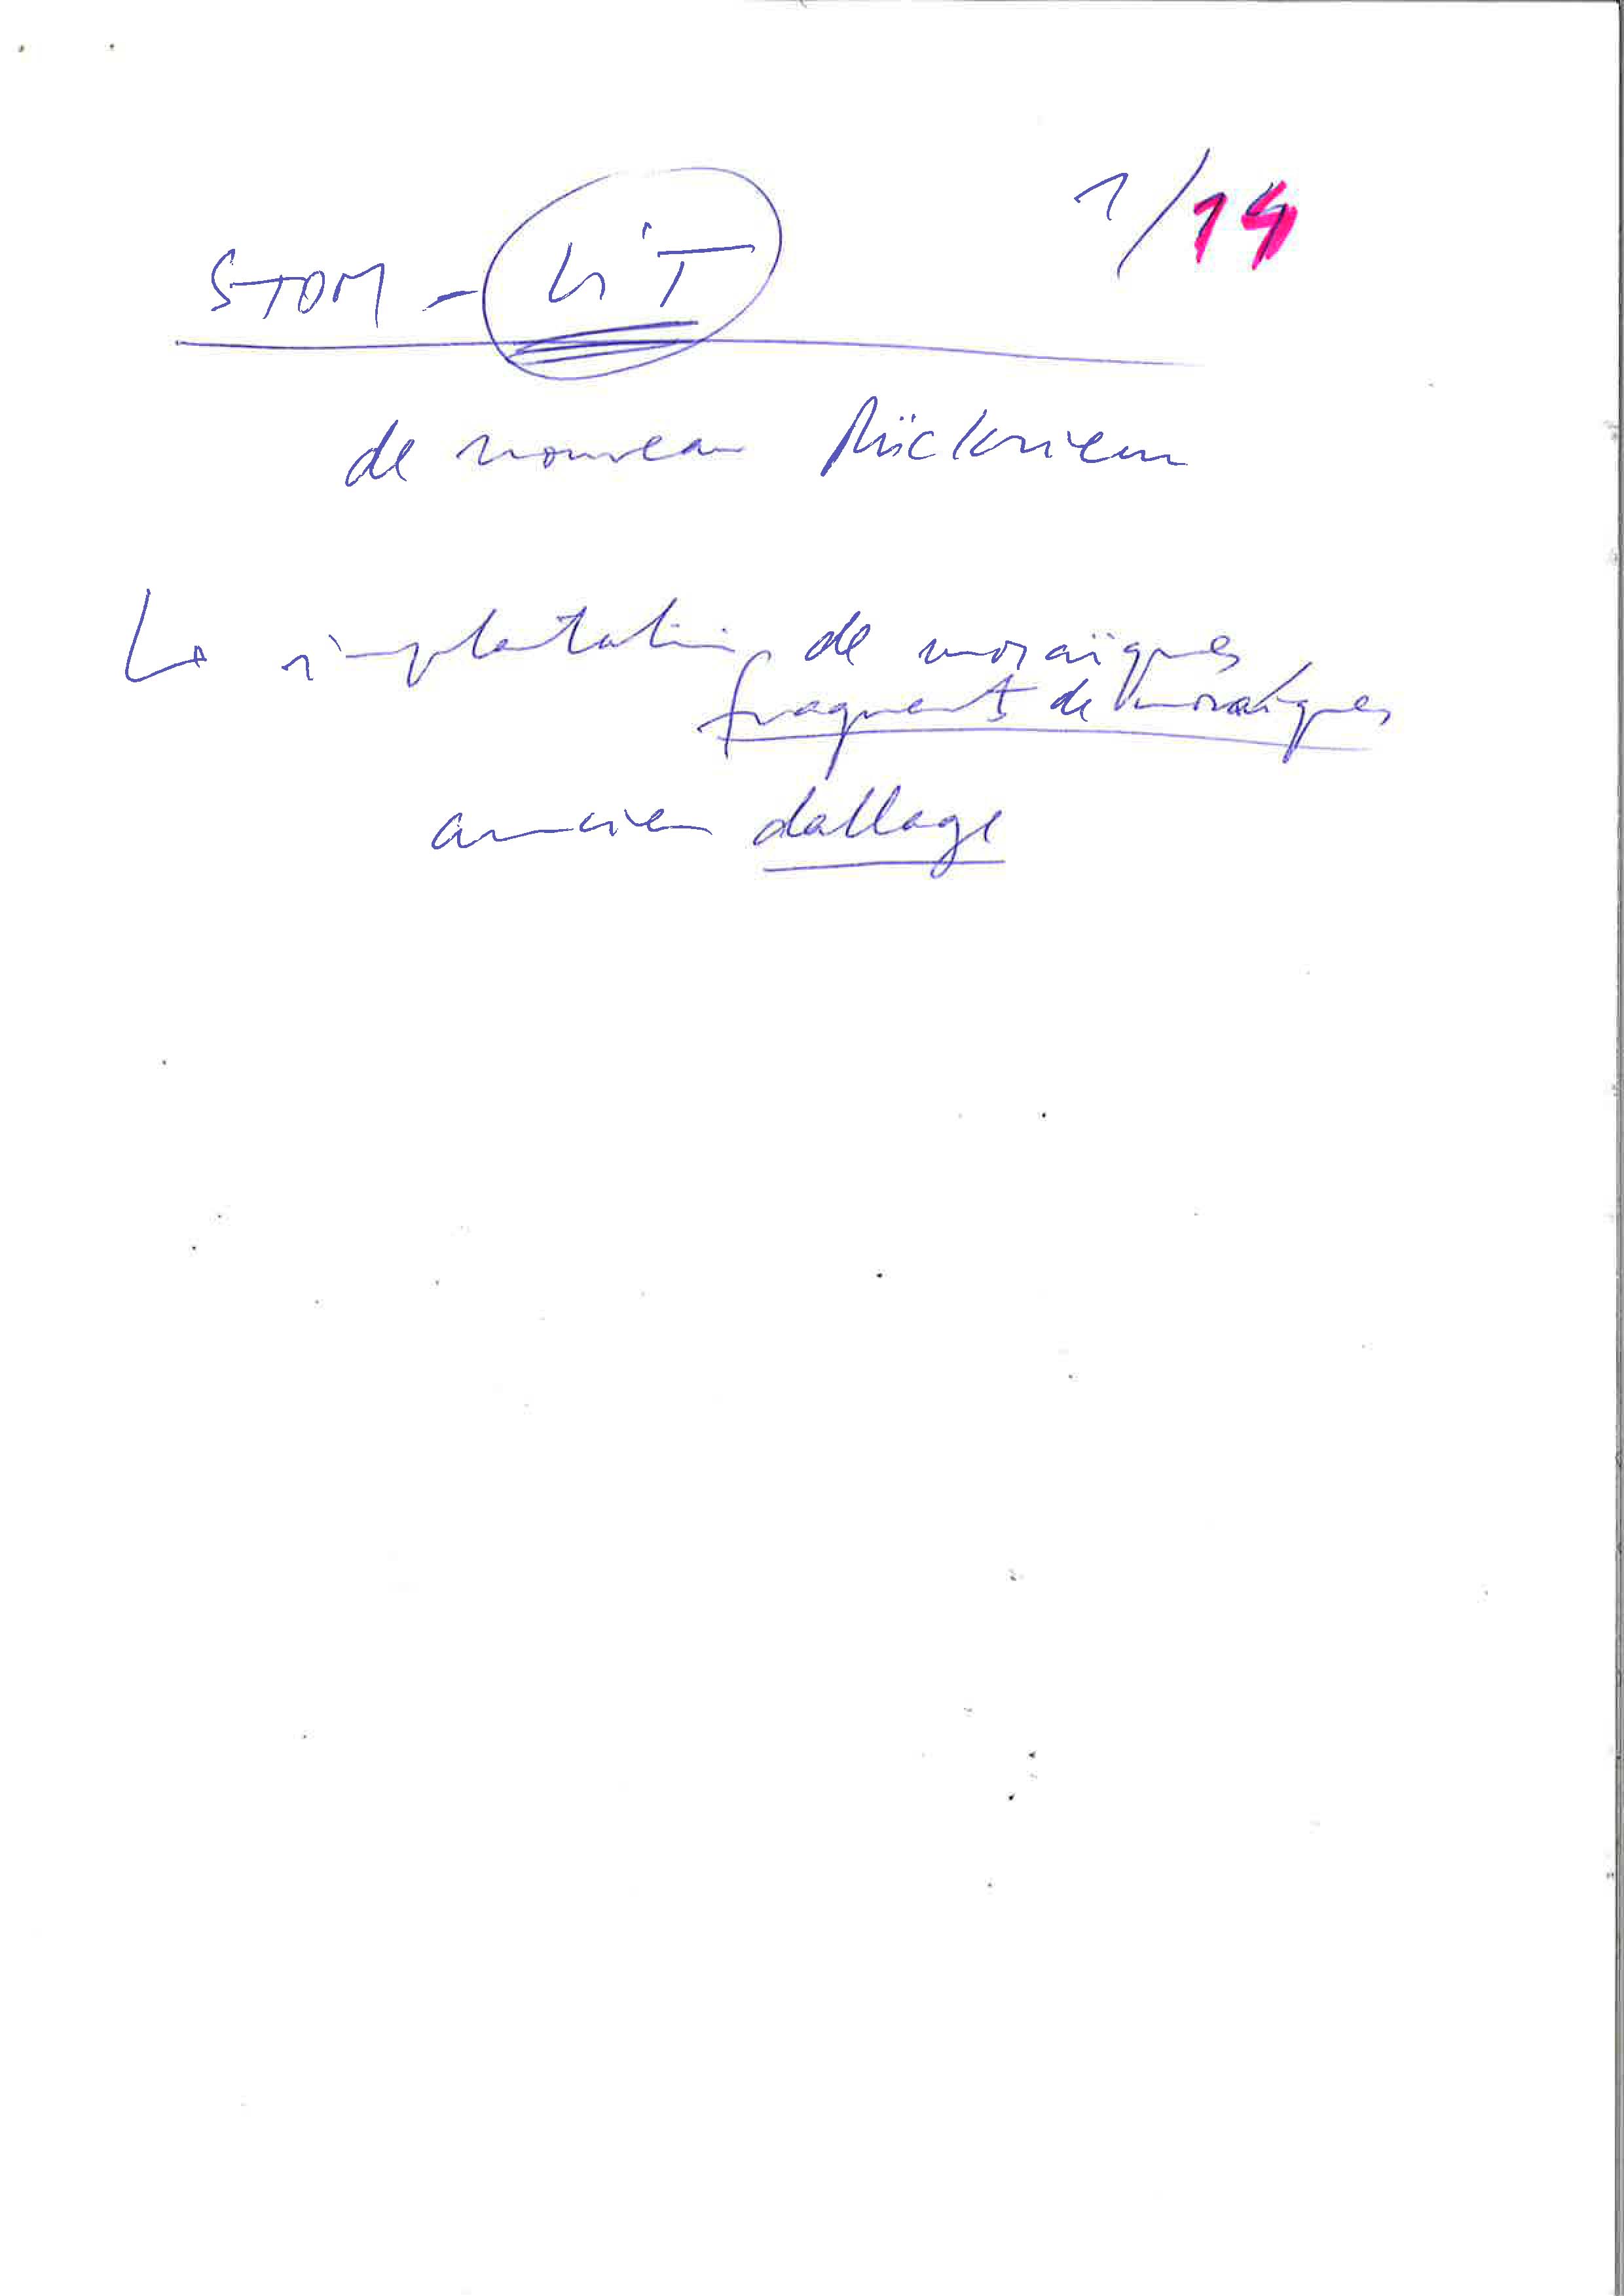 1/14
STOM - LiT
de nouveau Rückriem
La implantation de mosaïques
fragments de mosaïques
ancien dallage